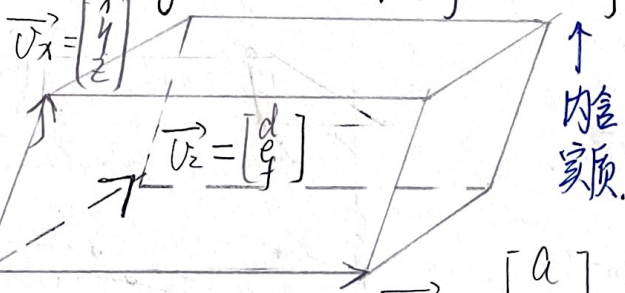 →
Vx = [x y z]
→
V2 = [d e f]
↑
内含
实质.
[a]